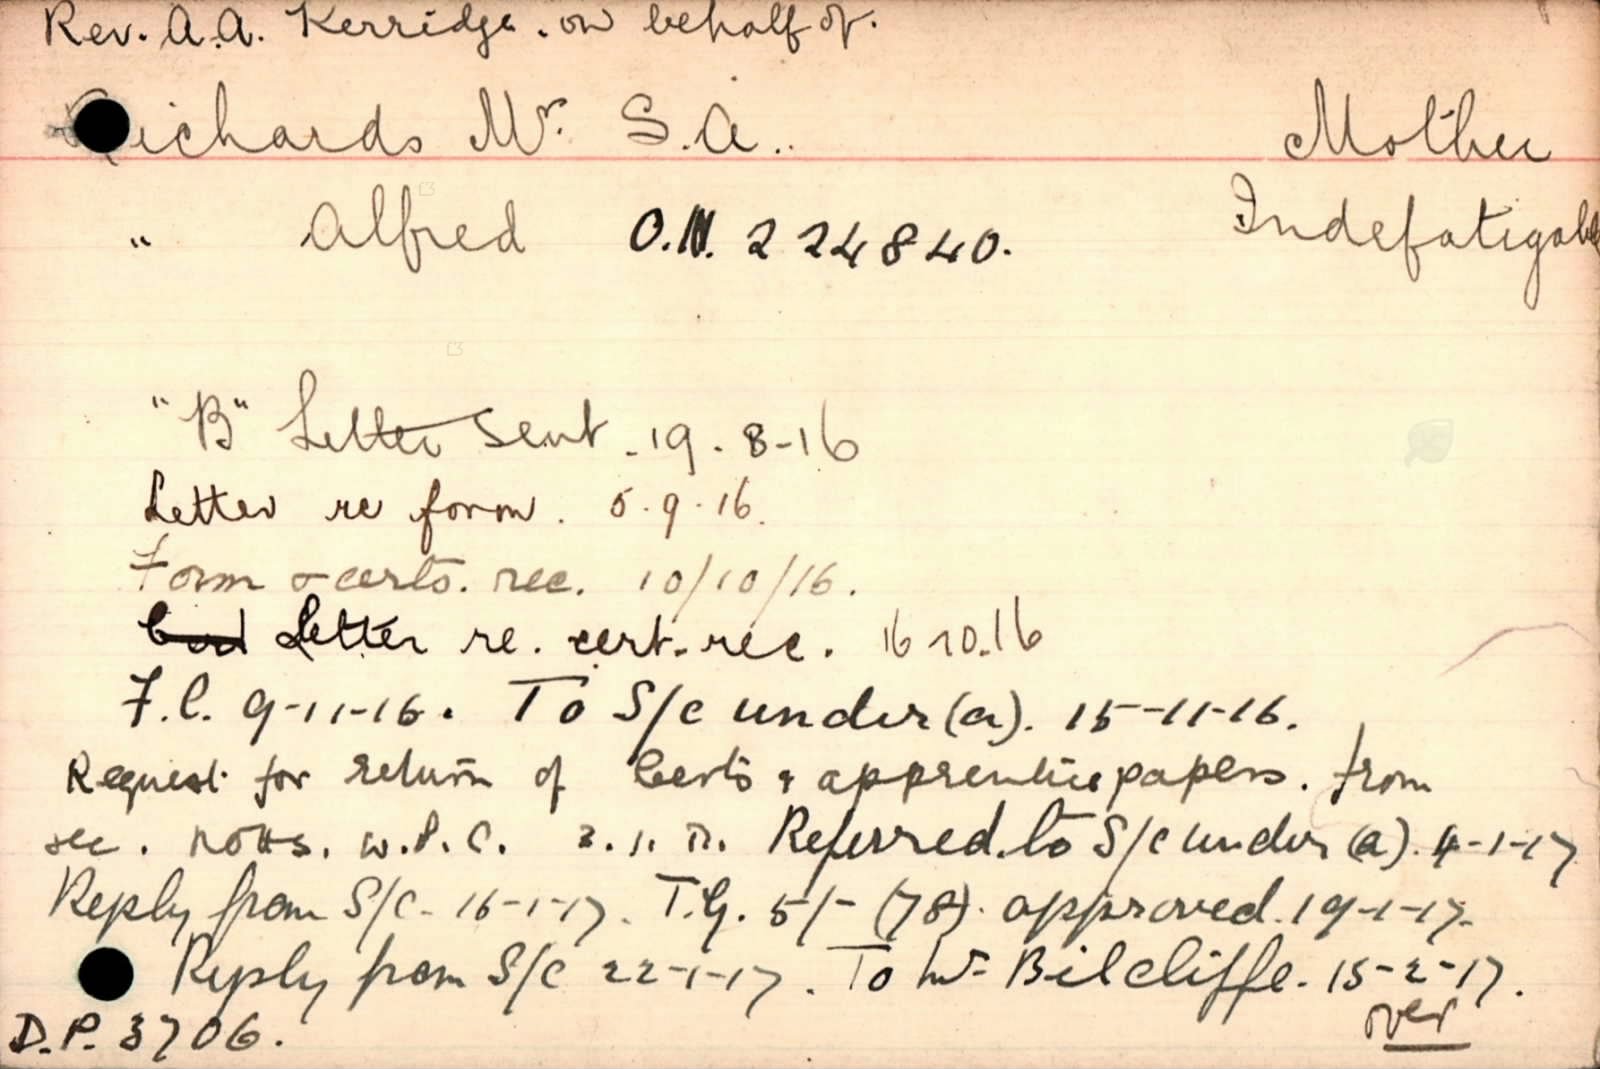 Rev. A.A. Kerridge. on behalf of.
Richards Mr. S.A.. Mother
" Alfred O.N. 224840. Indefatigable
"B" Letter sent 19.8-16
Letter re form. 5.9.16.
Form & certs. rec. 10/10/16.
Letter re. cert. rec. 16 10.16
F.C. 9-11-16. To S/c under (a). 15-11-16.
Request for return of Certs & apprentice papers. from
sec. Notts. W.P.C. 2.1.17. Referred to S/c under (a). 4-1-17
Reply from S/C- 16-1-17. T.G. 5/- (78). approved. 19-1-17.
Reply from S/C 22-1-17. To Mr Bilcliffe. 15-2-17.
over
D.P. 3706.